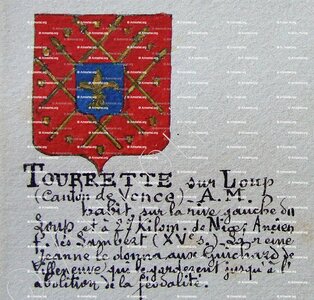 TOURRETTE sur LOUP
(Canton de Vence) A.M.
habit. sur la rive gauche du
Loup et à 27 kilom. de Nice. Ancien
f. des Lambert (XVe s.). La reine
Jeanne le donna aux Guichard de
Villeneuve qui le garderent jusqu'à l'
abolition de la féodalité.